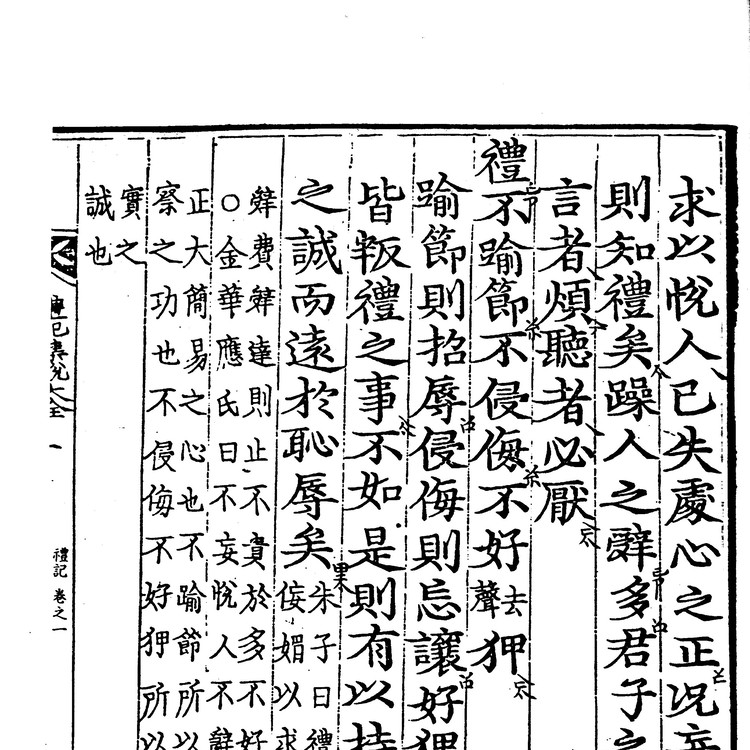 求以悅人已失處心之正況妄
則知禮矣躁人之辭多君子之
言者煩聽者必厭
禮不踰節不侵侮不好去聲狎
踰節則招辱侵侮則忘讓好狎
皆叛禮之事不如是則有以持
之誠而遠於恥辱矣
朱子曰禮
侫媚以求
辭費辭達則止不貴於多不好
○金華應氏曰不妄悅人不辭
正大簡易之心也不踰節所以
察之功也不侵侮不好狎所以
實之
誠也
禮記集說大全 一
禮記 卷之一